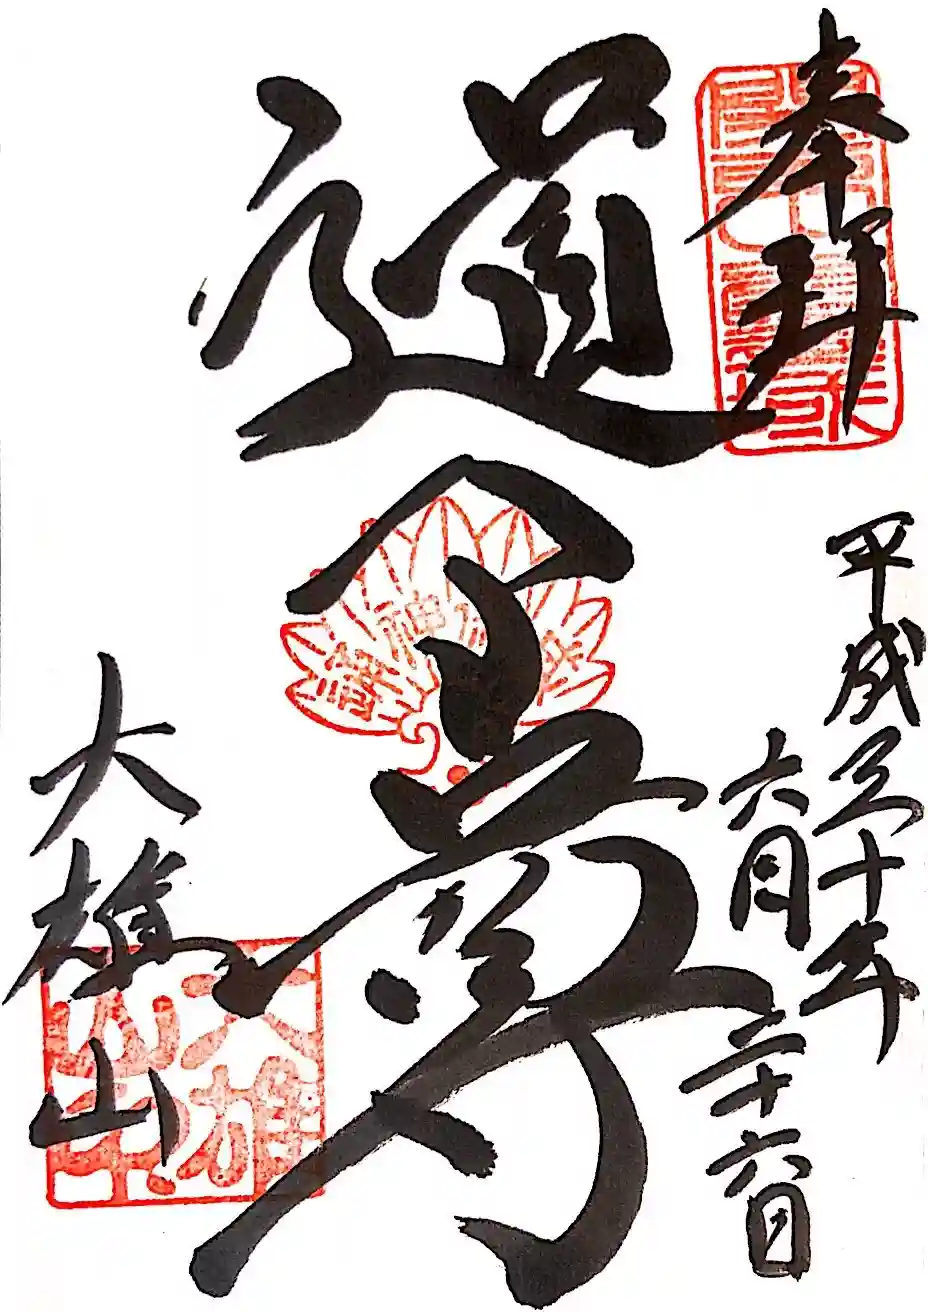 奉拝
平成三十年
六月二十六日
道了尊
大雄山
大雄
山印